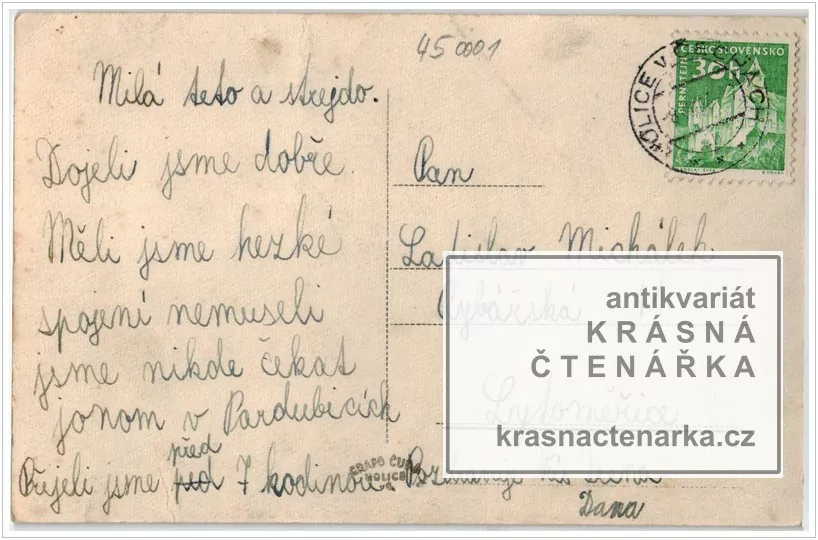 45 0001
Milá teto a strejdo.
Dojeli jsme dobře.
Měli jsme hezké
spojení nemuseli
jsme nikde čekat
jonom v Pardubicích
před
Přijeli jsme 7 hodinou
Pozdravuje Vás Irena
Dana
Pan
Ladislav Michálek
Rybářská
Lytoměřice
ČESKOSLOVENSKO
30h
PERNŠTEJN
HOLICE V ČECHÁCH
GRAFO ČUDA
HOLICE
antikvariát
KRÁSNÁ
ČTENÁŘKA
krasnactenarka.cz